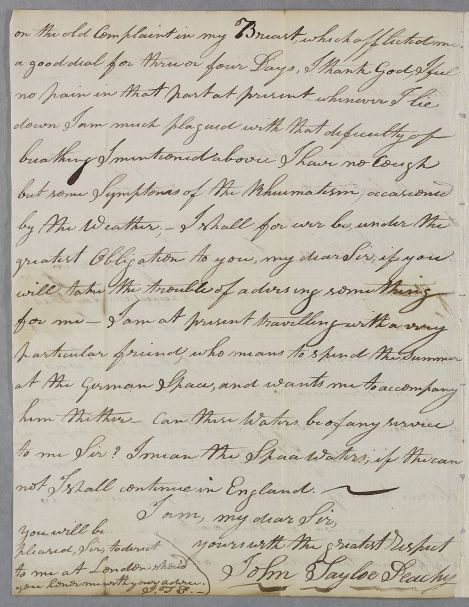 on the old Complaint in my Breast, which afflicted me
a good deal for three or four Days, I thank God I feel
no pain in that part at present whenever I lie
down I am much plagued with that dificulty of
breathing I mentioned above I have no Cough
but some Symptoms of the Rheumatism, occasioned
by the Weather; – I shall for ever be, under the
greatest Obligation to you, my dear Sir, if you
will take the trouble of advising something
for me – I am at present travelling with a very
particular friend who means to spend the Summer
at the German Spaa, and wants me to accompany
him thither – Can these Waters be of any service
to me Sir? I mean the Spaa Waters, if the can
not I shall continue in England.
I am, my dear Sir,
yours with the greatest respect
John Tayloe
you will be
pleased, Sir, to direct
to me at London should
you honor me with your advice.